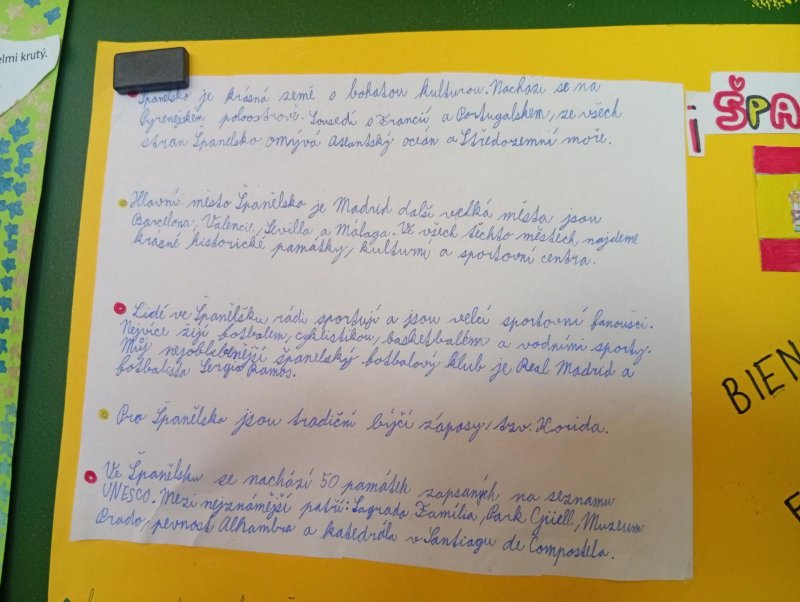 elmi krutý.
Španělsko je krásná země s bohatou kulturou. Nachází se na
Pyrenejském poloostrově. Sousedí s Francií a Portugalskem, ze všech
stran Španělsko omývá Atlantský oceán a Středozemní moře.
Hlavní město Španělska je Madrid další velká města jsou
Barcelona, Valencie, Sevilla a Málaga. Ve všech těchto městech najdeme
krásné historické památky, kulturní a sportovní centra.
Lidé ve Španělsku rádi sportují a jsou velcí sportovní fanoušci.
Nejvíce žijí fotbalem, cyklistikou, basketbalem a vodními sporty.
Můj nejoblíbenější španělský fotbalový klub je Real Madrid a
fotbalista Sergio Ramos.
Pro Španělsko jsou tradiční býčí zápasy, tzv. Korida.
Ve Španělsku se nachází 50 památek zapsaných na seznamu
UNESCO. Mezi nejznámější patří: Sagrada Família, Park Güell, Muzeum
Prado, pevnost Alhambra a katedrála v Santiagu de Compostela.
ŠPA
BIEN